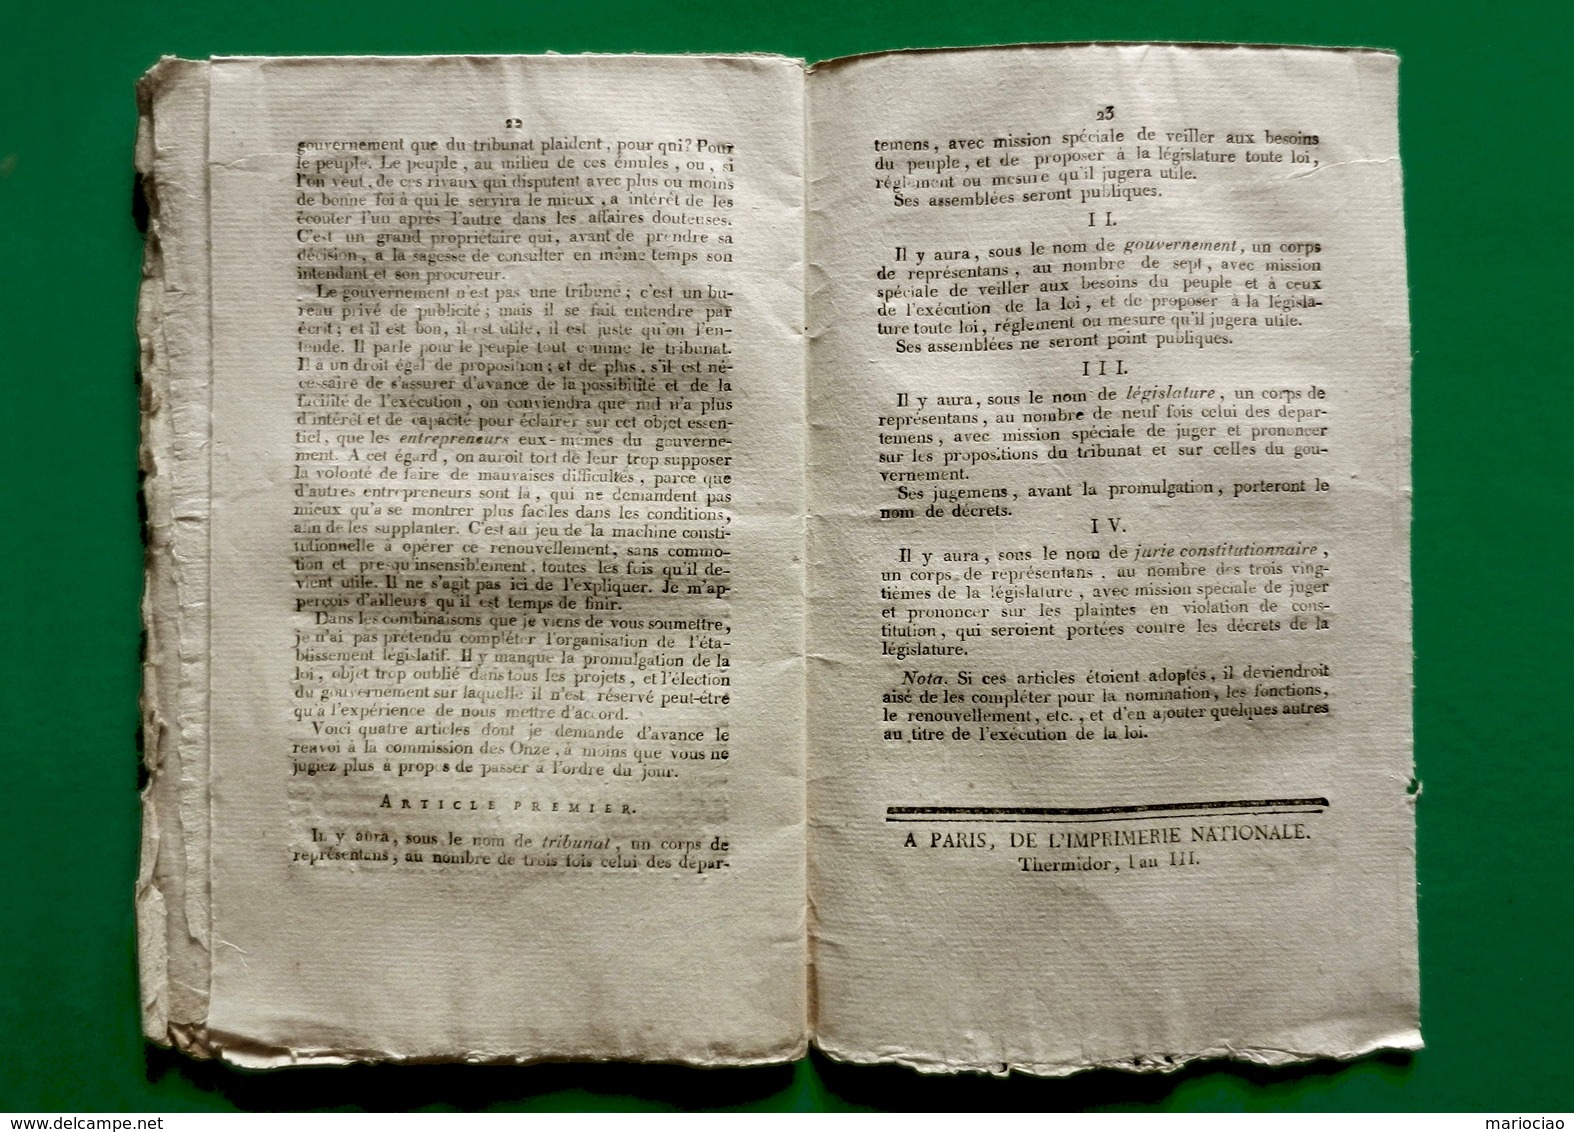 22
gouvernement que du tribunat plaident, pour qni? Pour
le peuple. Le peuple, au milieu de ces émules, ou, si
l'on veut, de ces rivaux qui disputent avec plus ou moins
de bonne foi à qui le servira le mieux, a intérêt de les
écouter l'un après l'autre dans les affaires douteuses.
C'est un grand propriétaire qui, avant de prendre sa
décision, a la sagesse de consulter en même temps son
intendant et son procureur.
Le gouvernement n'est pas une tribune; c'est un bu-
reau privé de publicité; mais il se fait entendre par
écrit; et il est bon, il est utile, il est juste qu'on l'en-
tende. Il parle pour le peuple tout comme le tribunat.
Il a un droit égal de proposition; et de plus, s'il est né-
cessaire de s'assurer d'avance de la possibilité et de la
facilité de l'exécution, on conviendra que nul n'a plus
d'intérêt et de capacité pour éclairer sur cet objet essen-
tiel, que les entrepreneurs eux-mêmes du gouverne-
ment. A cet égard, on auroit tort de leur trop supposer
la volonté de faire de mauvaises difficultés, parce que
d'autres entrepreneurs sont là, qui ne demandent pas
mieux qu'a se montrer plus faciles dans les conditions,
afin de les supplanter. C'est au jeu de la machine consti-
tutionnelle à opérer ce renouvellement, sans commo-
tion et presqu'insensiblement, toutes les fois qu'il de-
vient utile. Il ne s'agit pas ici de l'expliquer. Je m'ap-
perçois d'ailleurs qu'il est temps de finir.
Dans les combinaisons que je viens de vous soumettre,
je n'ai pas prétendu compléter l'organisation de l'éta-
blissement législatif. Il y manque la promulgation de la
loi, objet trop oublié dans tous les projets, et l'élection
du gouvernement sur laquelle il n'est réservé peut-être
qu'à l'expérience de nous mettre d'accord.
Voici quatre articles dont je demande d'avance le
renvoi à la commission des Onze, à moins que vous ne
jugiez plus à propos de passer a l'ordre du jour.
ARTICLE PREMIER.
Il y aura, sous le nom de tribunat, un corps de
représentans, au nombre de trois fois celui des dépar-
23
temens, avec mission spéciale de veiller aux besoins
du peuple, et de proposer à la législature toute loi,
réglement ou mesure qu'il jugera utile.
Ses assemblées seront publiques.
II.
Il y aura, sous le nom de gouvernement, un corps
de représentans, au nombre de sept, avec mission
spéciale de veiller aux besoins du peuple et à ceux
de l'exécution de la loi, et de proposer à la législa-
ture toute loi, réglement ou mesure qu'il jugera utile.
Ses assemblées ne seront point publiques.
III.
Il y aura, sous le nom de législature, un corps de
représentans, au nombre de neuf fois celui des depar-
temens, avec mission spéciale de juger et prononcer
sur les propositions du tribunat et sur celles du gou-
vernement.
Ses jugemens, avant la promulgation, porteront le
nom de décrets.
IV.
Il y aura, sous le nom de jurie constitutionnaire,
un corps de représentans, au nombre des trois ving-
tièmes de la législature, avec mission spéciale de juger
et prononcer sur les plaintes en violation de cons-
titution, qui seroient portées contre les décrets de la
législature.
Nota. Si ces articles étoient adoptés, il deviendroit
aisé de les compléter pour la nomination, les fonctions,
le renouvellement, etc., et d'en ajouter quelques autres
au titre de l'exécution de la loi.
A PARIS, DE L'IMPRIMERIE NATIONALE.
Thermidor, l'an III.
www.delcampe.net
mariociao